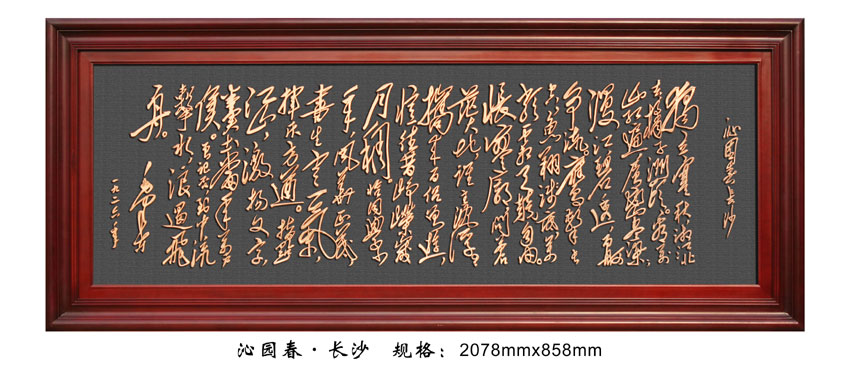 沁园春 长沙
独立寒秋,湘江北
去,橘子洲头。看万
山红遍,层林尽染
漫江碧透,百舸
争流。鹰击长
空,鱼翔浅底,万
类霜天竞自由。
怅寥廓,问苍
茫大地,谁主沉浮
携来百侣曾游,
忆往昔峥嵘岁
月稠。恰同学少
年,风华正茂,
书生意气,
挥斥方遒。指点
江山,激扬文字,
粪土当年万户
侯。曾记否,到中流
击水,浪遏飞
舟。
毛泽东
沁园春·长沙 规格：2078mmx858mm